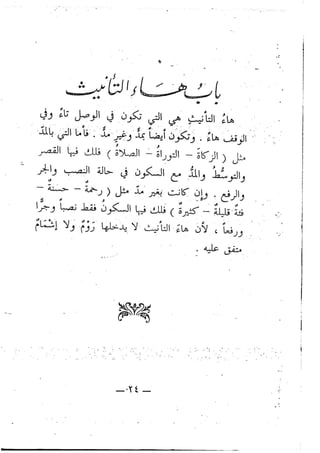 بابُ هَاءِ التأنيث
هاءُ التأنيثِ هي التي تكون في الوصل تاءً وفي
الوقف هاءً . وتكون أيضاً بمدٍّ وغيرِ مدٍّ . فأما التي بالمدّ
مثل ( الزكاةَ - التوراةَ - الصلاةَ ) فلك فيها القصر
والتوسُّطُ والمدُّ مع السكون في حالة النصب والجر
والرفع . وإن كانت بغير مدّ مثل ( رحمةً - حسنةً -
فئةً قليلةً - كثيرةً ) فلك فيها السكونُ فقط نصباً وجرًّا
ورفعاً ، لأن هاءَ التأنيث لا يدخلها رَوْمٌ ولا إشمامٌ
متفق عليه .
— ٢٤ —